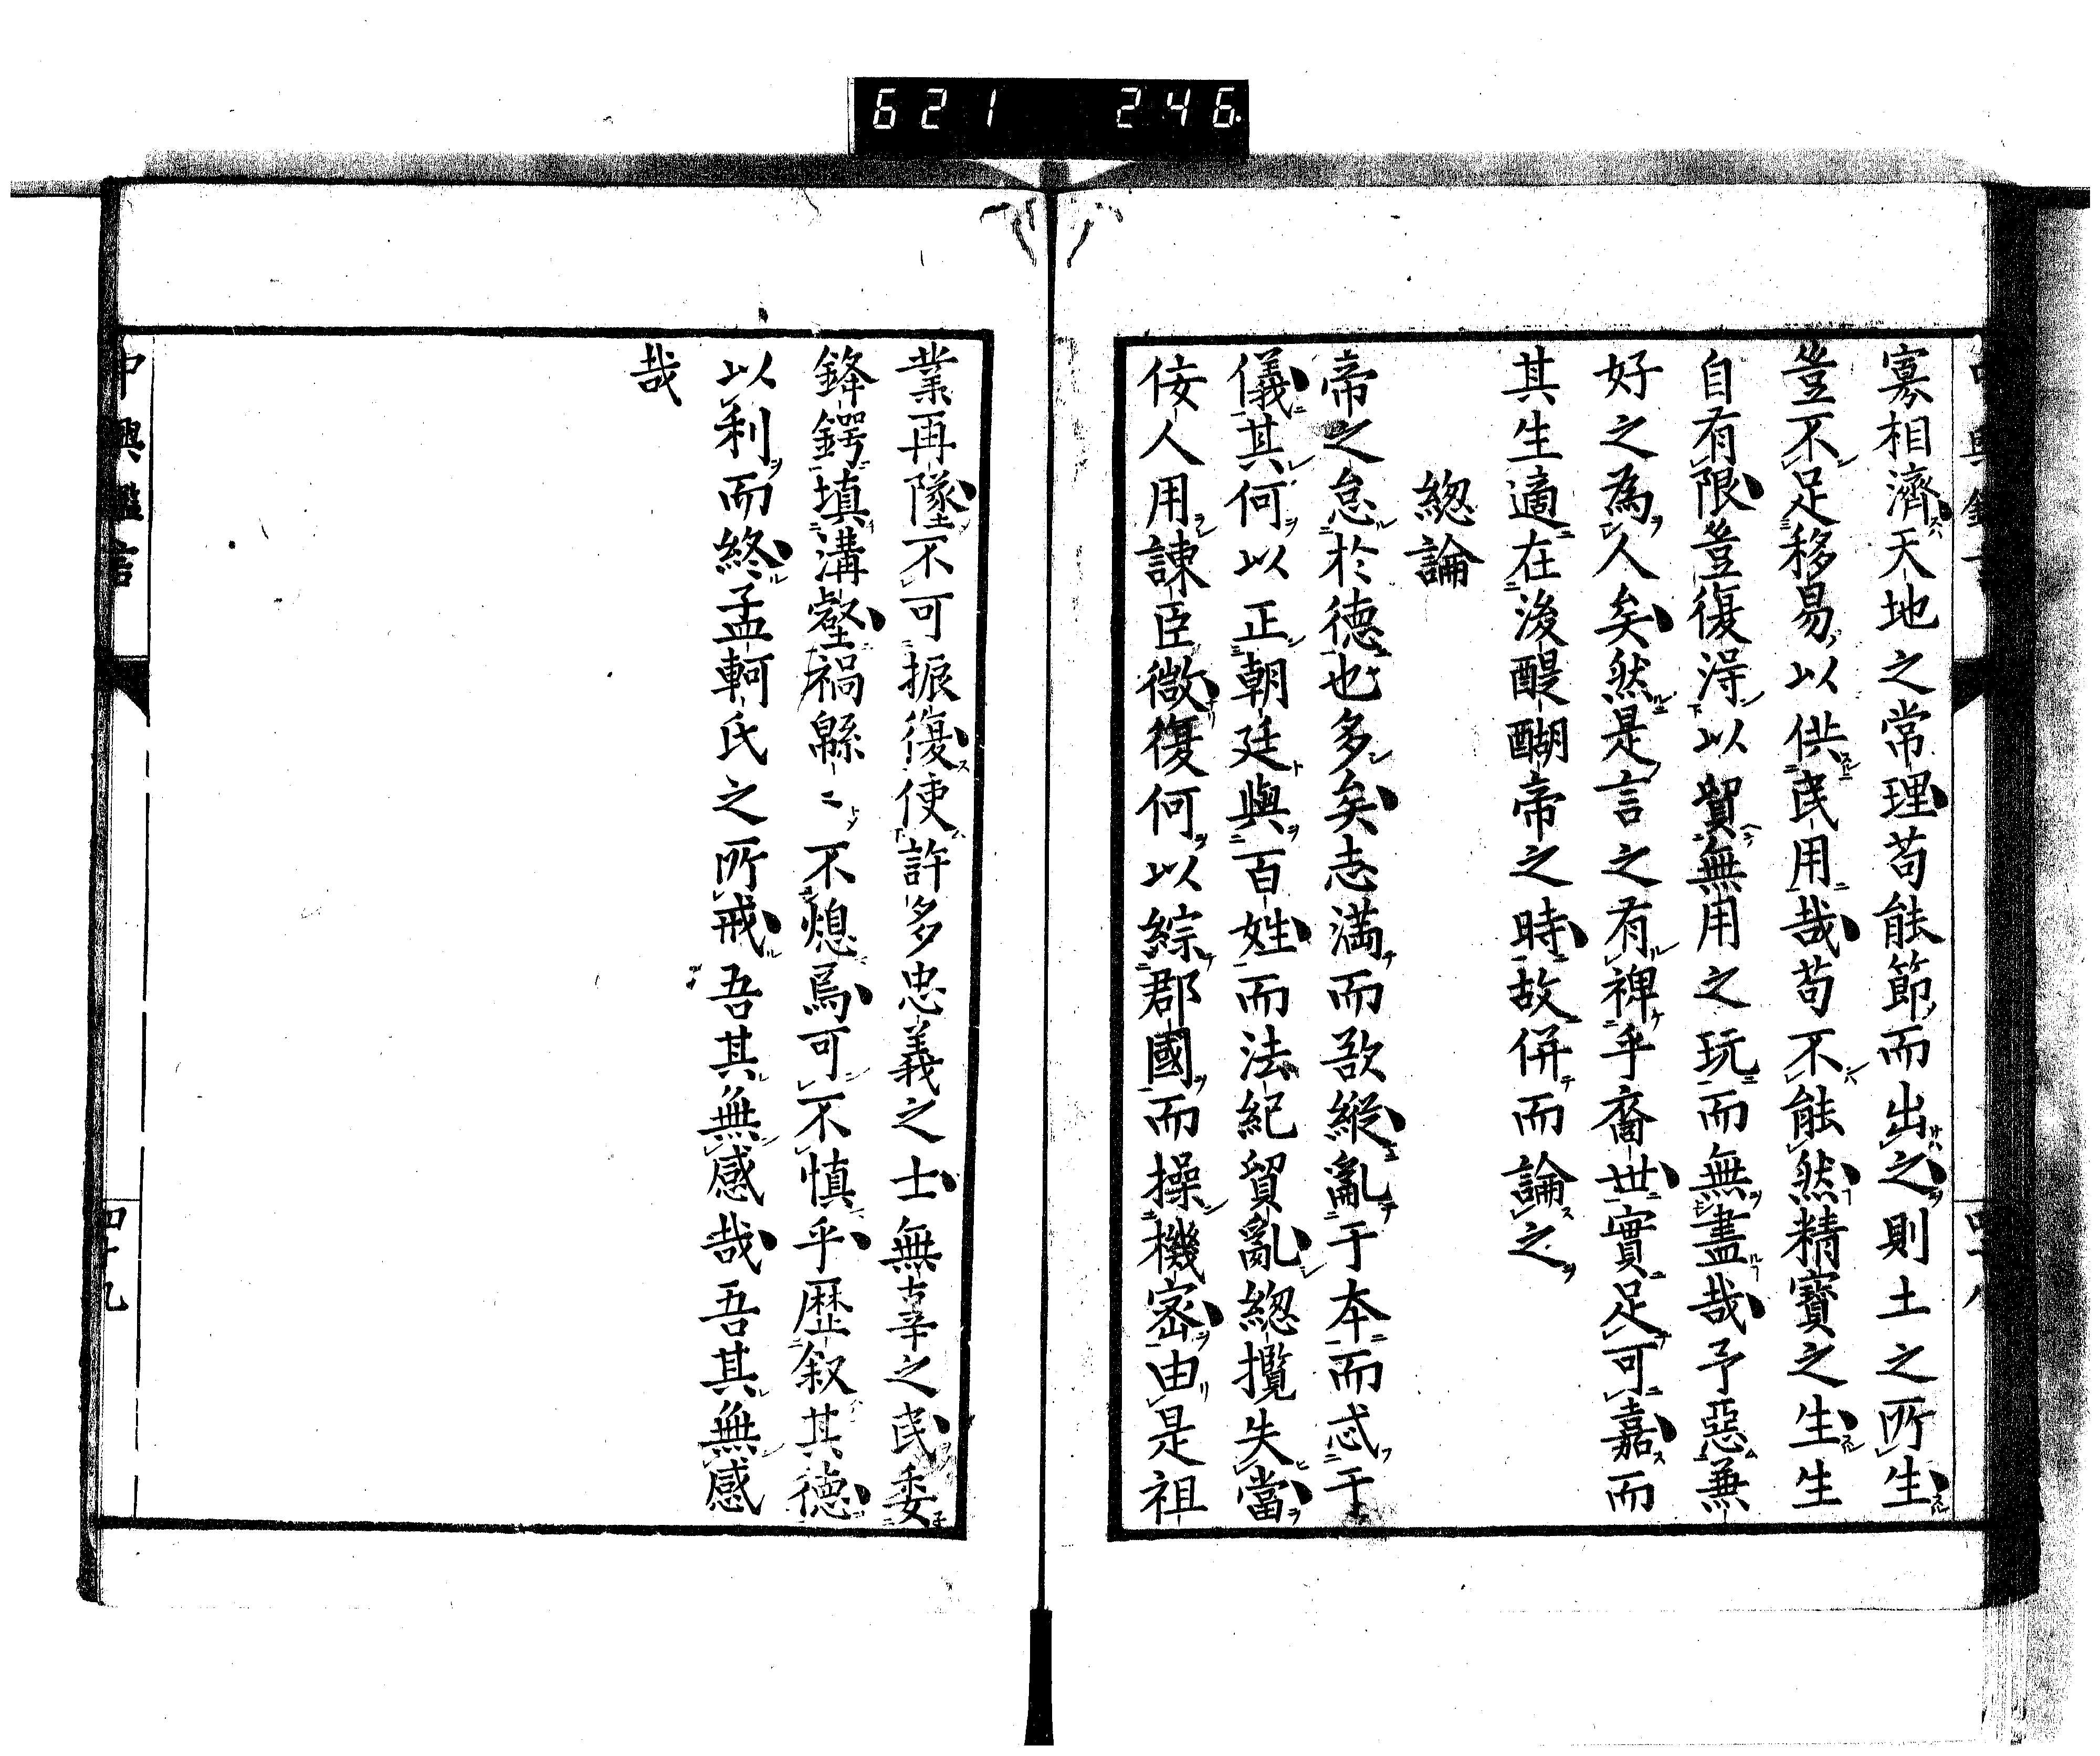 621 246
寡相濟天地之常理苟能節而出之則土之所生
豈不足移易以供民用哉苟不能然精寶之生生
自有限豈復得以貿無用之玩而無盡哉予惡無
好之為人矣然是言之有裨乎裔世實足可嘉而
其生適在後醍醐帝之時故併而論之
緫論
帝之怠於德也多矣志滿而欲縱亂于本而忒于
儀其何以正朝廷與百姓而法紀貿亂緫攬失當
侫人用諫臣微復何以綜郡國而操機密由是祖
業再墜不可振復使許多忠義之士無辜之民委
鋒鍔填溝壑禍緜〻不熄焉可不慎乎歷叙其德
以利而終孟軻氏之所戒吾其無感哉吾其無感
哉
中興鑑言
四十九